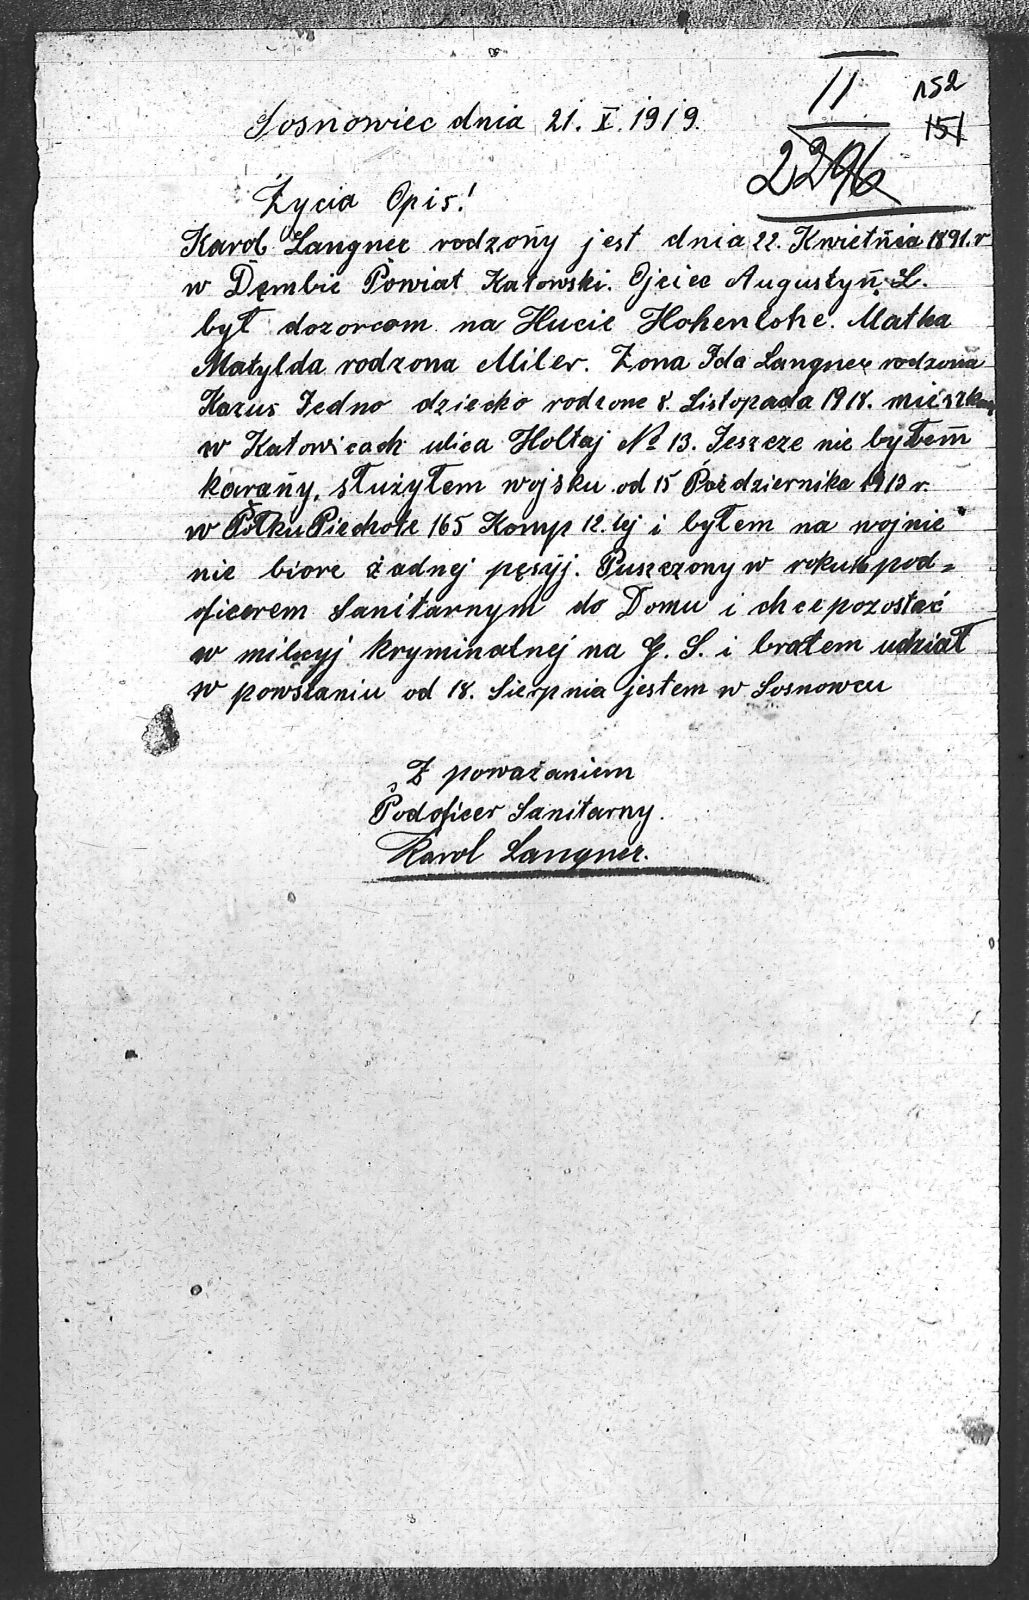 11
152
151
2296
Sosnowiec dnia 21. X. 1919.
Życia Opis!
Karol Langner rodzony jest dnia 22. Kwietnia 1891. r
w Dembie Powiat Katowski. Ojciec Augustyn L.
był dozorcom na Hucie Hohenlohe. Matka
Matylda rodzona Miler. Żona Ida Langner rodzona
Kazus Jedno dziecko rodzone 8. Listopada 1918.
w Katowicach ulica Holtaj No 13. Jeszcze nie byłem
karany, służyłem wojsku od 15 Października 1913 r.
w Połku Piechote 165 Komp 12. tej i byłem na wojnie
nie biore żadnej pęsyj. Puszczony w roku pod=
oficerem Sanitarnym do Domu i chce pozostać
w milicyj kryminalnej na G. S. i brałem udział
w powstaniu od 18. Sierpnia jestem w Sosnowcu
Z poważaniem
Podoficer Sanitarny.
Karol Langner.